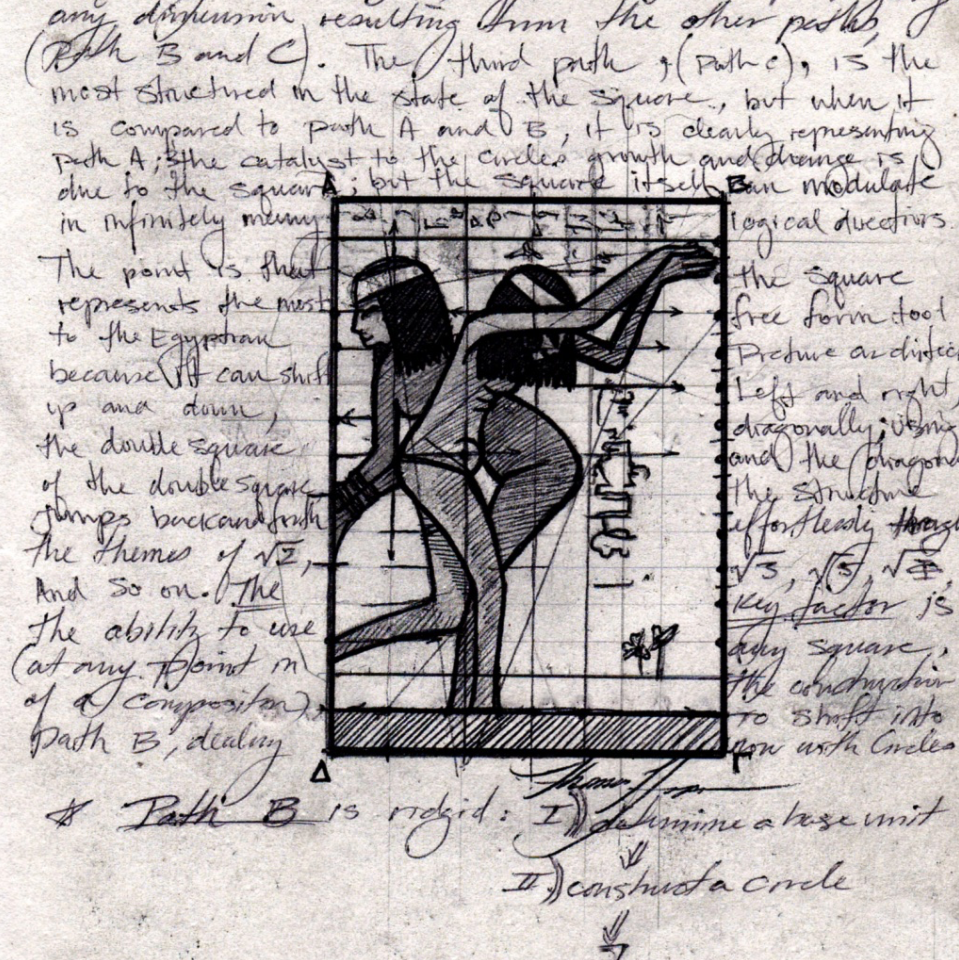 any dimension resulting from the other paths,
(Path B and C). The third path, (path c), is the
most structured in the state of the square, but when it
is compared to path A and B, it is clearly representing
path A; the catalyst to the circles growth and change is
due to the square; but the square itself can modulate
A B
in infinitely many logical directions.
The point is that the square
represents the most free form tool
to the Egyptian
because it can shift Left and right,
up and down, diagonally, using
the double square and the diagonal
of the double square the structure
jumps back and forth effortlessly
the themes of √2, √3, √5,
And so on. The key factor is
the ability to use any square,
(at any point in the construction
of a composition), to shift into
path B, dealing now with Circles
Δ Γ
Path B is ridgid: I) determine a base unit
II) construct a circle